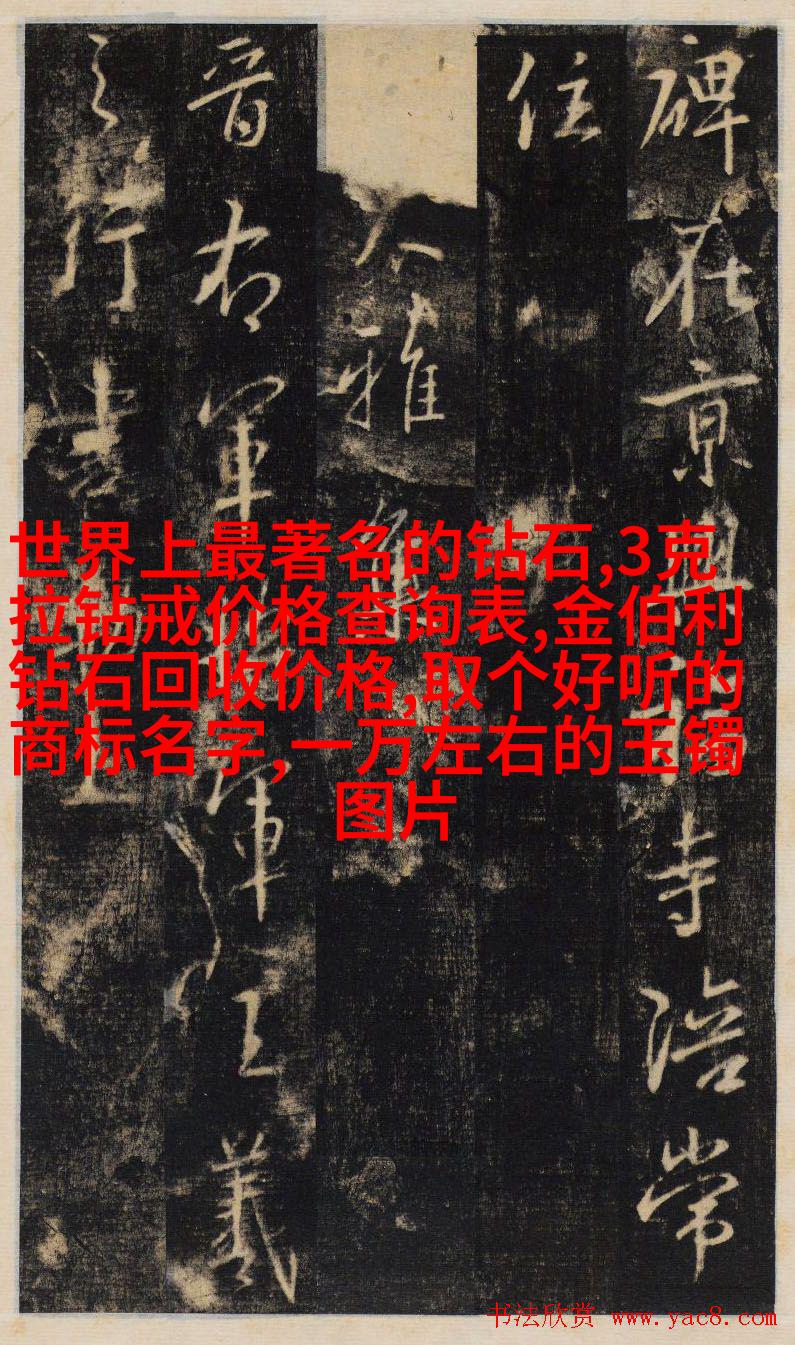 碑在京興寺陪常
住
大雅集
晋右軍軍王羲
之行書
世界上最著名的钻石,3克
拉钻戒价格查询表,金伯利
钻石回收价格,取个好听的
商标名字,一万左右的玉镯
图片
书法欣赏 www.yac8.com